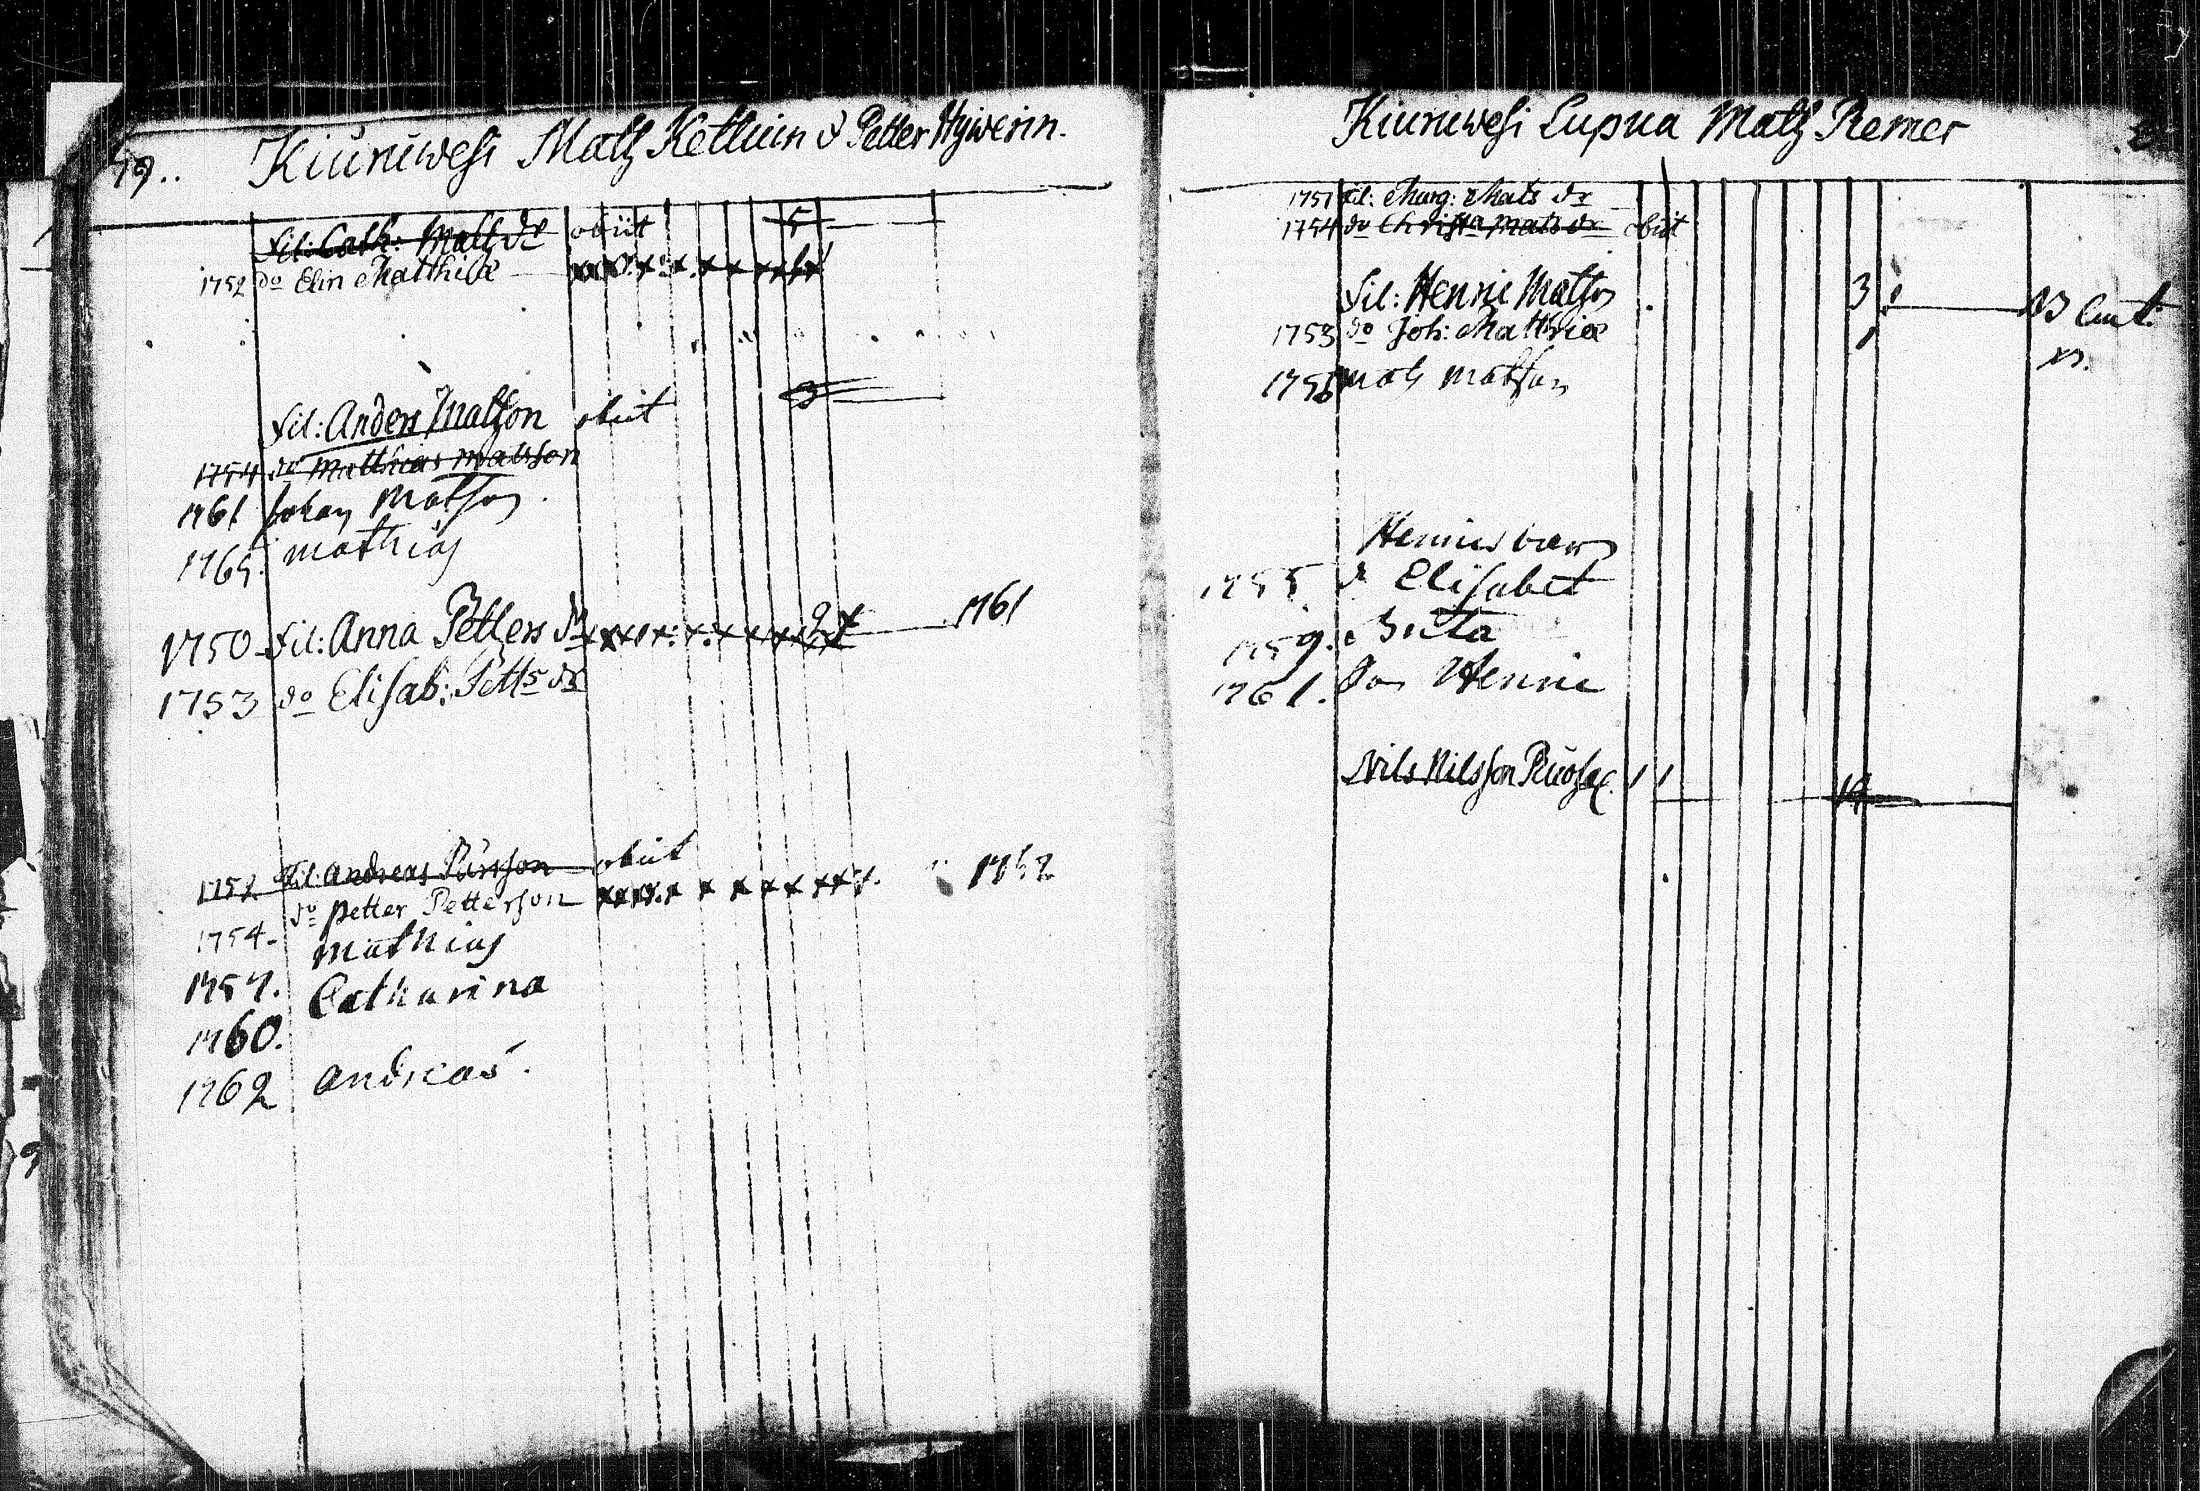 59..
Kiuruwesi Matz Kettuin & Petter Hywerin.
fil: Cath: Matz dr obiit 5
1752 do Elin Matthiæ
fil: Anders Matzon obiit 3
1754 do Matthias Matsson
1761 Johan Matson
1765. Mathias
1750 fil: Anna Petters dr 2 1761
1753 do Elisab: Petts dr
1752 fil: Andreas Pärsson obiit
do Petter Petterson 1752
1754. Mathias
1757. Catharina
1760.
1762 Andreas.
Kiuruwesi Lupua Matz Remes
1751 fil: Marg: Mats dr
1754 do Christa Mats dr obiit
fil: Henric Matson 3
1753 do Joh: Matthiæ
Mats Matson
Henrics barn
1755 dr Elisabet
1759. Brita
1761. Son Henric
Nils Nilsson Ruotzal. 1 1